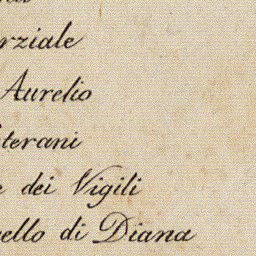 rziale
Aurelio
terani
dei Vigili
ello di Diana